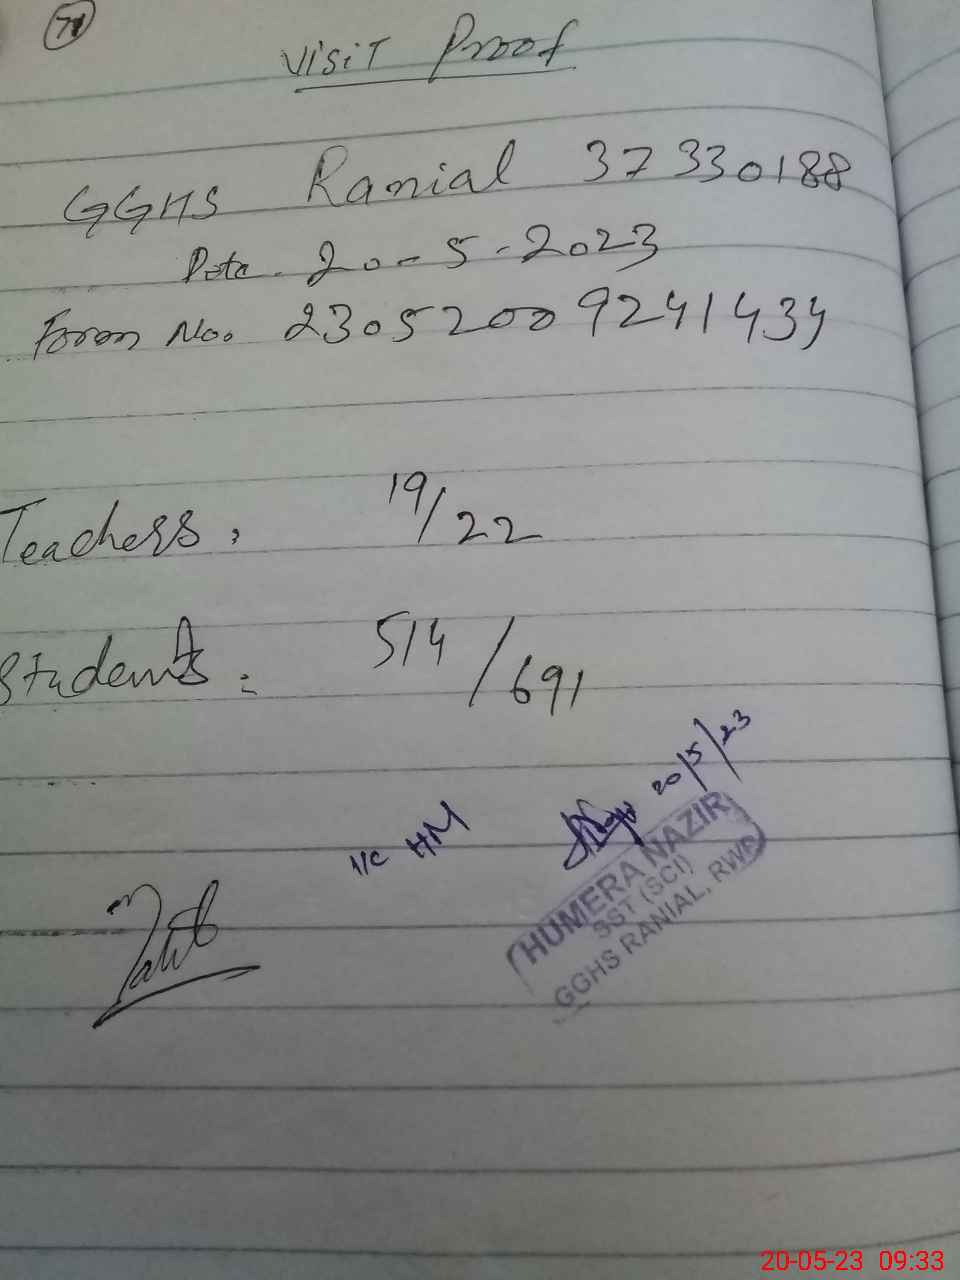 71
Visit Proof
GGHS Ranial 37330188
Date. 20-5-2023
Form No. 23052009241434
Teachers, 19/22
Students: 514/691
20/5/23
I/C HM
HUMERA NAZIR
SST (SCI)
GGHS RANIAL, RWP
20-05-23 09:33